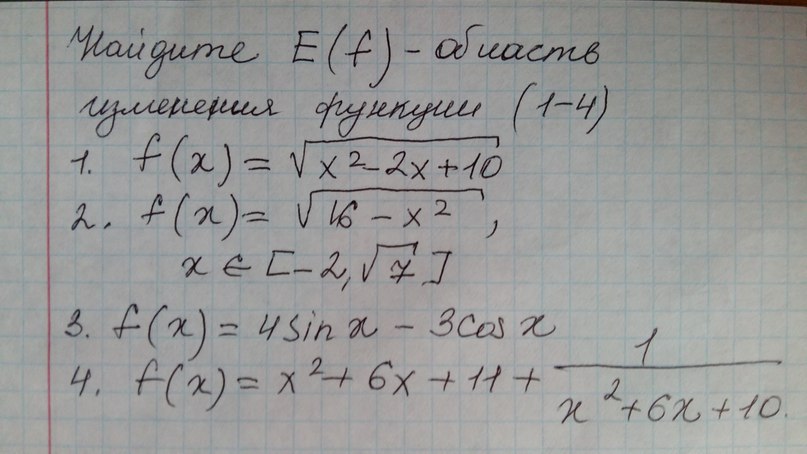 Найдите E(f) - область
изменения функции (1-4)
1. f(x) = √(x²-2x+10)
2. f(x) = √(16-x²),
x ∈ [-2, √7]
3. f(x) = 4sin x - 3cos x
4. f(x) = x² + 6x + 11 + 1/(x²+6x+10).